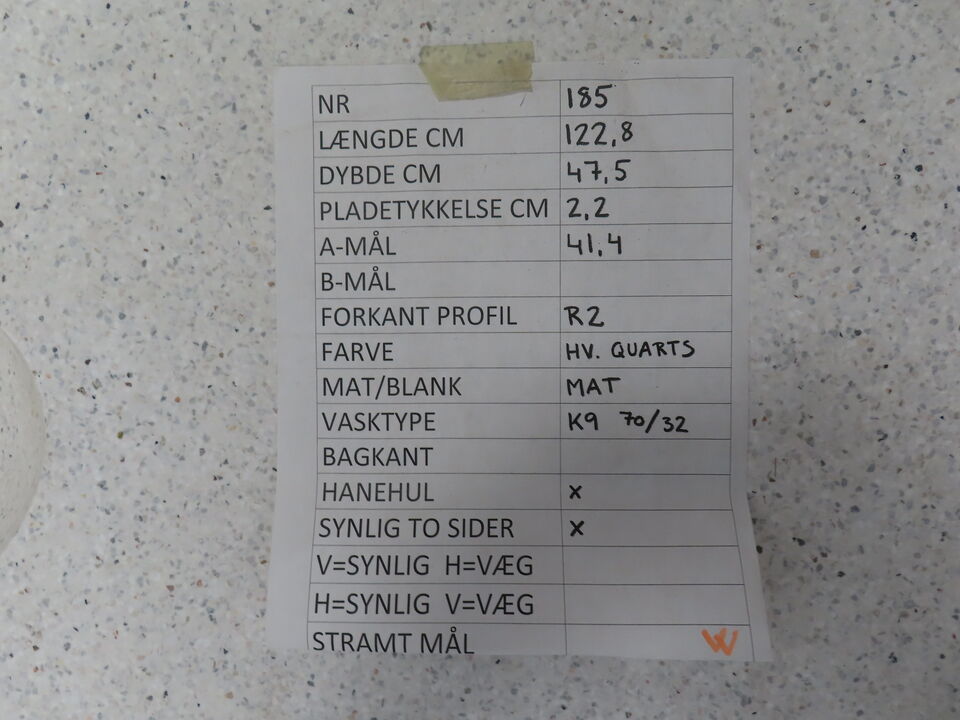 NR 185
LÆNGDE CM 122,8
DYBDE CM 47,5
PLADETYKKELSE CM 2,2
A-MÅL 41,4
B-MÅL
FORKANT PROFIL R2
FARVE HV. QUARTS
MAT/BLANK MAT
VASKTYPE K9 70/32
BAGKANT
HANEHUL x
SYNLIG TO SIDER x
V=SYNLIG H=VÆG
H=SYNLIG V=VÆG
STRAMT MÅL W